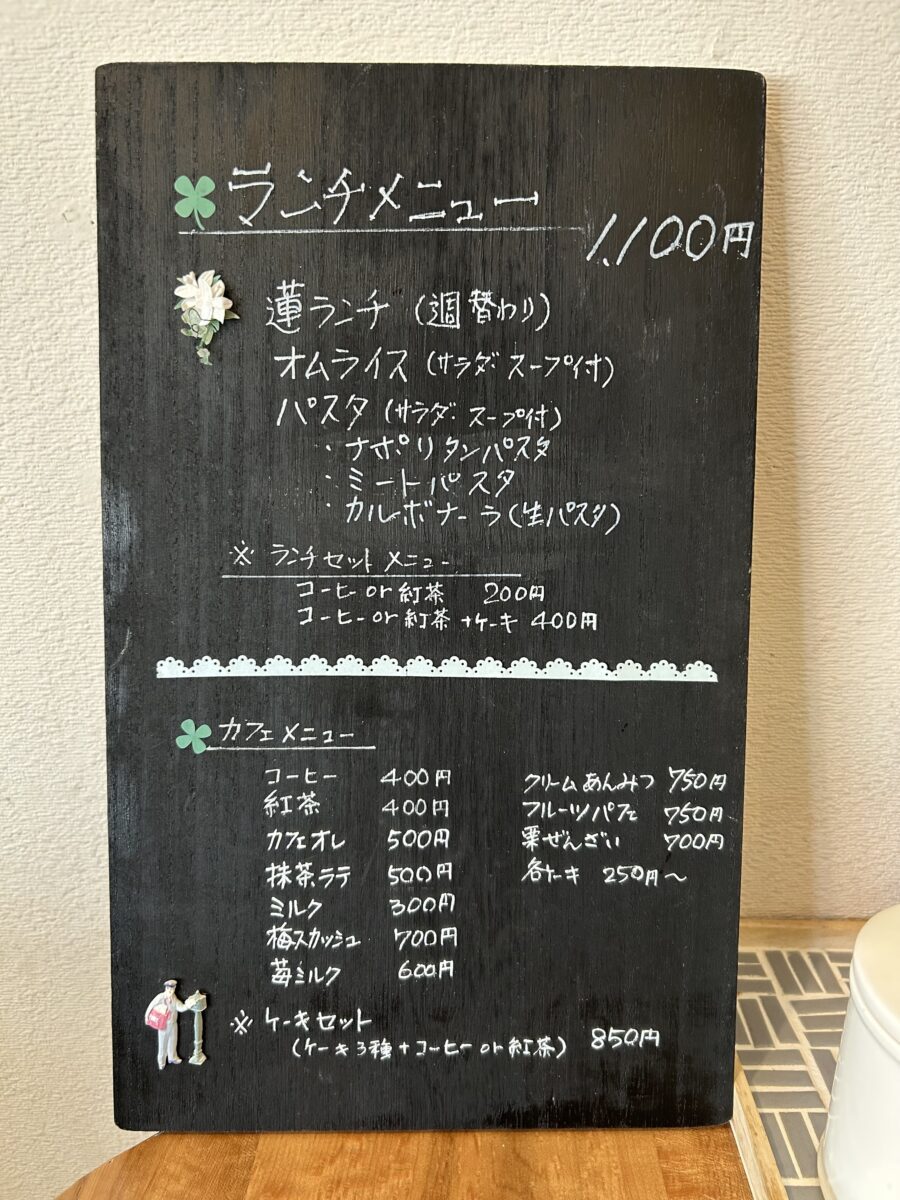 ランチメニュー
1,100円
蓮ランチ (週替わり)
オムライス (サラダ・スープ付)
パスタ (サラダ・スープ付)
・ナポリタンパスタ
・ミートパスタ
・カルボナーラ (生パスタ)
※ ランチセットメニュー
コーヒー or 紅茶 200円
コーヒー or 紅茶 +ケーキ 400円
カフェメニュー
コーヒー 400円
紅茶 400円
カフェオレ 500円
抹茶ラテ 500円
ミルク 300円
梅スカッシュ 700円
苺ミルク 600円
クリームあんみつ 750円
フルーツパフェ 750円
栗ぜんざい 700円
各ケーキ 250円〜
※ ケーキセット
(ケーキ3種+コーヒー or 紅茶) 850円